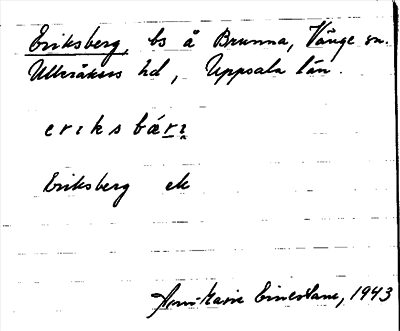 Eriksberg, bs å Brunna, Vänge sn.
Ulleråkers hd, Uppsala län.
erıksbárı̣
Eriksberg ek
Ann-Marie, 1943